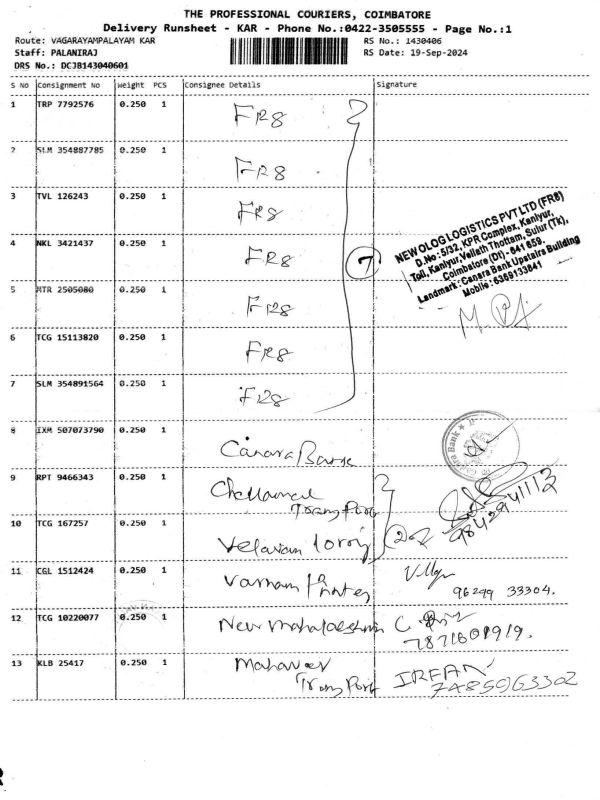 THE PROFESSIONAL COURIERS, COIMBATORE
Delivery Runsheet - KAR - Phone No.:0422-3505555 - Page No.:1
Route: VAGARAYAMPALAYAM KAR
RS No.: 1430406
Staff: PALANIRAJ
RS Date: 19-Sep-2024
DRS No.: DCJB143040601
S No Consignment No Weight PCS Consignee Details Signature
1 TRP 7792576 0.250 1 FR8
2 SLM 354887785 0.250 1 FR8
3 TVL 126243 0.250 1 FR8
NEW OLOG LOGISTICS PVT LTD (FR8)
D.No: 5/32, KPR Complex, Kaniyur,
Toll, Kaniyur, Vellath Thottam, Sulur (Tk),
Coimbatore (Dt) - 641 659.
Landmark : Canara Bank Upstairs Building
Mobile : 6369133641
4 NKL 3421437 0.250 1 FR8 7
5 MTR 2505080 0.250 1 FR8
6 TCG 15113820 0.250 1 FR8
7 SLM 354891564 0.250 1 FR8
8 IXM 507073790 0.250 1 Canara Bank
Canara Bank
9 RPT 9466343 0.250 1 Chellamal
Transport
9842941112
10 TCG 167257 0.250 1 Velavan lorry 2
11 CGL 1512424 0.250 1 Varnam Printes
96299 33304.
12 TCG 10220077 0.250 1 New mahalakshmi
7871601919.
13 KLB 25417 0.250 1 Mahaveer
Transport
IRFAN
7485963302